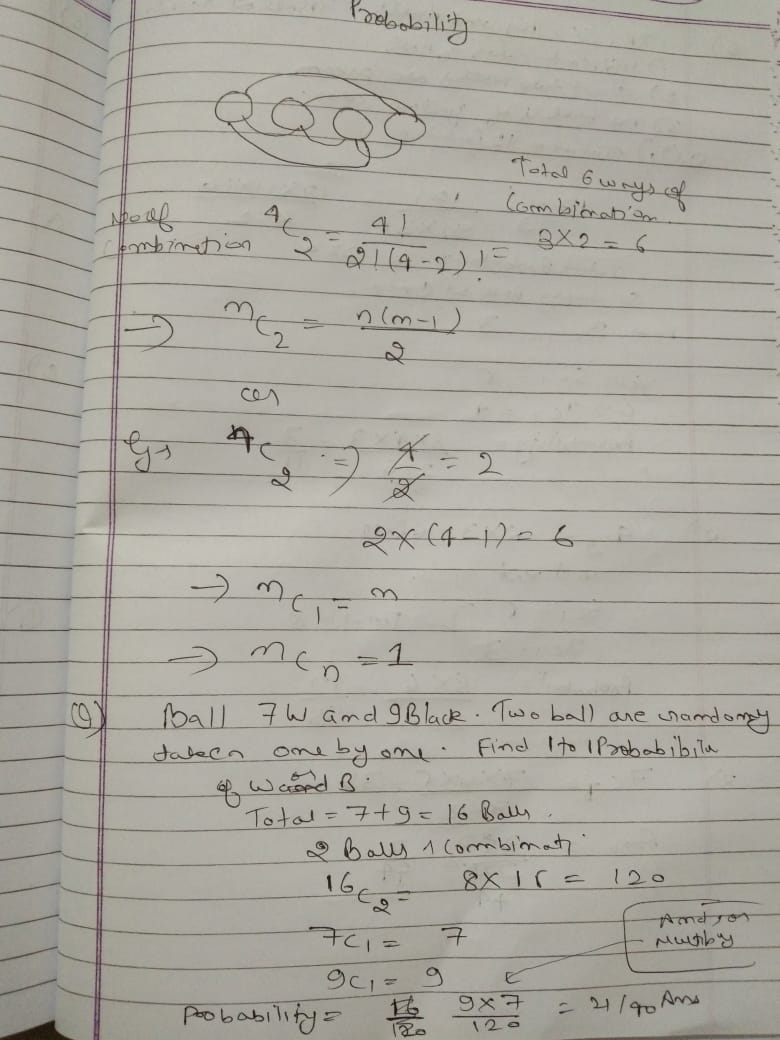 Probability
Total 6 ways of
Combination
No of
Combination
4C2 = 4! / 2!(4-2)! = 3X2 = 6
→ nC2 = n(n-1) / 2
or
Eg→ 4C2 ⇒ 4/2 = 2
2X(4-1) = 6
→ nC1 = n
→ nCn = 1
Q) Ball 7W and 9Black. Two ball are
taken one by one. Find 1 to 1
of W and B.
Total = 7+9 = 16 Balls.
2 Balls 1
16C2 = 8X15 = 120
7C1 = 7
9C1 = 9
Multiply
Probability = 16/120 9X7/120 = 21/40 Ans